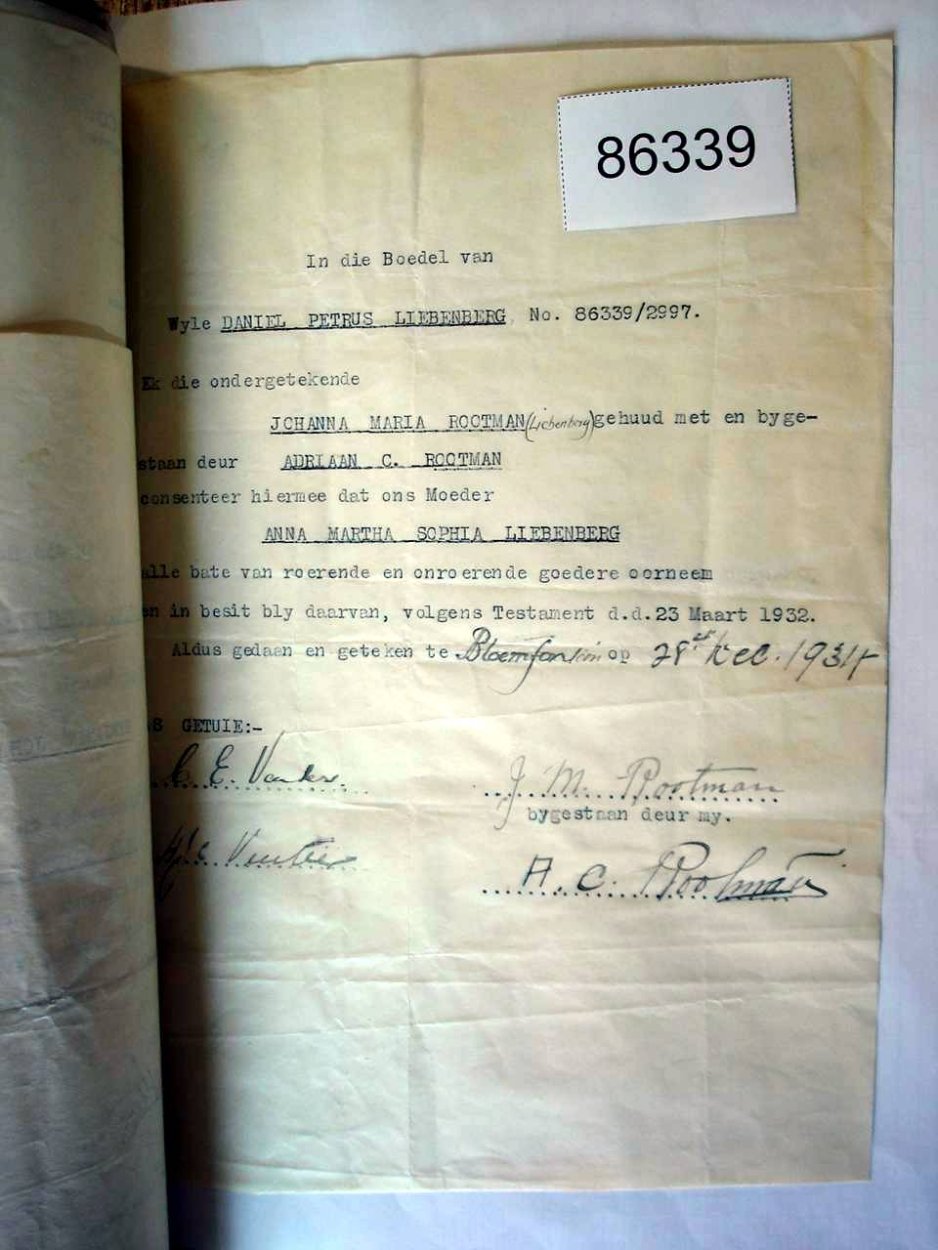 86339
In die Boedel van
Wyle DANIEL PETRUS LIEBENBERG No. 86339/2997.
Ek die ondergetekende
JOHANNA MARIA ROOTMAN (Liebenberg) gehuud met en byge-
staan deur ADRIAAN C. ROOTMAN
consenteer hiermee dat ons Moeder
ANNA MARTHA SOPHIA LIEBENBERG
alle bate van roerende en onroerende goedere oorneem
en in besit bly daarvan, volgens Testament d.d.23 Maart 1932.
Aldus gedaan en geteken te Bloemfontein op 28st Dec. 1934
AS GETUIE:-
C. E.
J. M. Rootman
bygestaan deur my.
Venter
A. C. Rootman